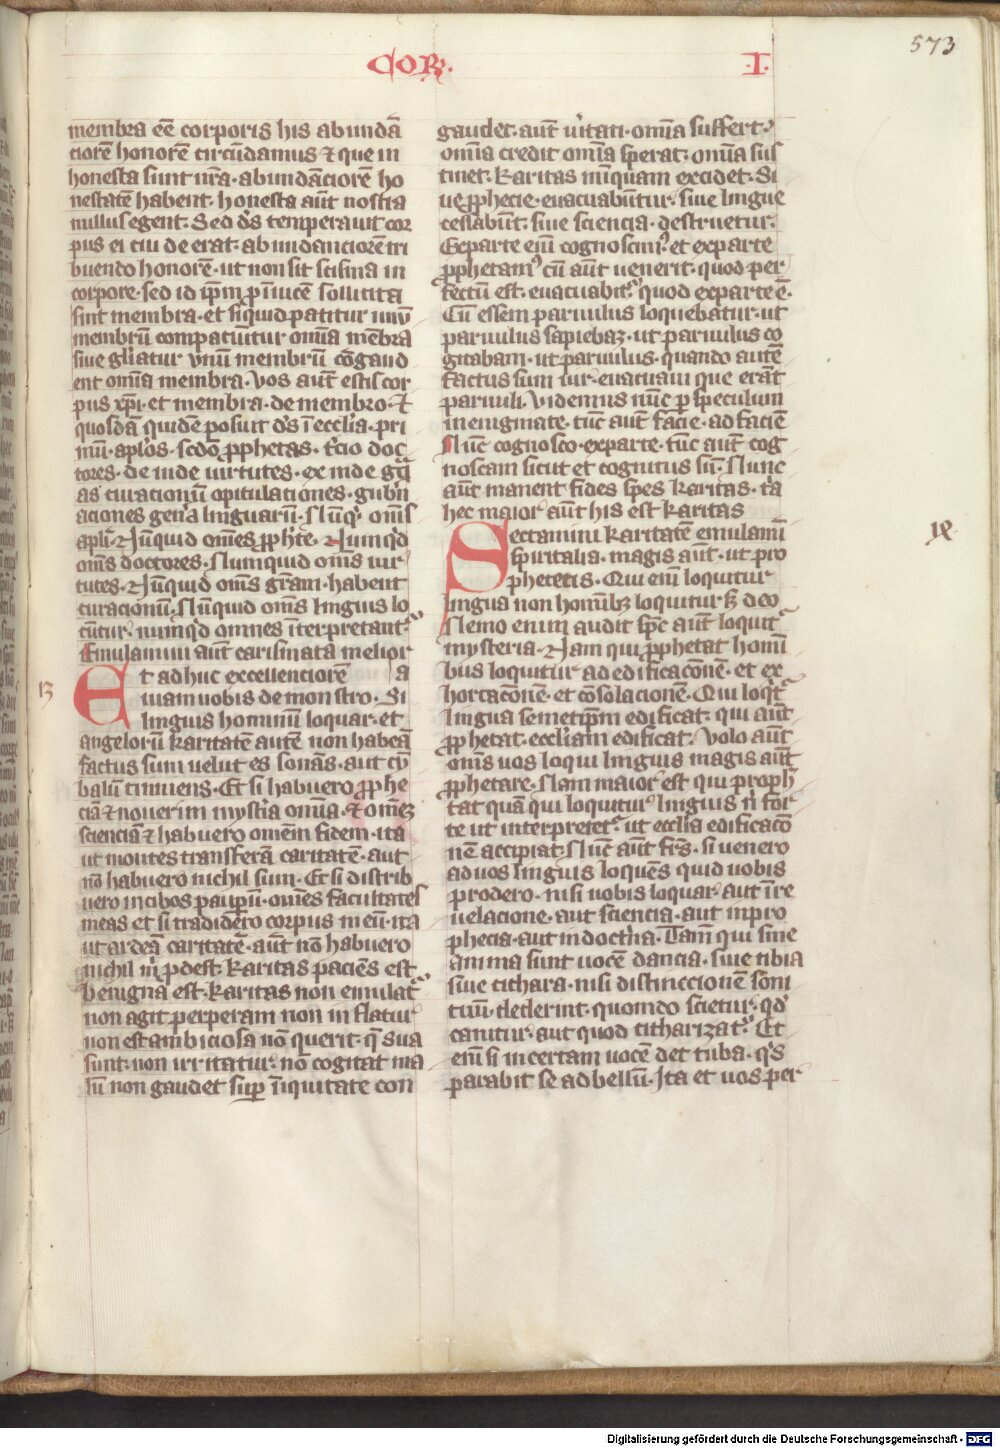 573
Cor. .I.
membra eē corporis his abundā
ciorē honorē circūdamus ⁊ que in
honesta sunt nr̄a · abundāciorē ho
nestatē habent. honesta aūt nostra
nullus egent. Sed d̄s temperauit cor
pus ei cui deerat · abundanciorē tri
buendo honorē · ut non sit scisma in
corpore · sed id ip̄m p̄ inuicē sollicita
sint membra · et si quid patitur unū
membrū compaciūtur omīa mēbra
siue gl̄iatur vnū membrū cōgaud
ent omīa membra. Vos aūt estis cor
pus xp̄i · et membra de membro · ⁊
quosdā quidē posuit d̄s ī ecclīa · pri
mū · ap̄los · scdō ꝓphetas · tc̄io doc
tores · de inde uirtutes · ex inde gr̄a
as curacionū opitulaciones · gub̄n
aciones gen̄a linguarū. Nūqͥd om̄s
apl̄i · Nūquid om̄es ꝓphē̄te · Numqͥd
om̄s doctores. Numquid om̄s uir
tutes · Nūquid om̄s gr̄am · habent
curacionū. Nūquid om̄s linguis lo
cūtur. nūmqͥd omnes īterpretant᷑
Emulamini aūt carismata meliora
Et adhuc excellenciorē
uiam uobis demonstro. Si
linguis hominū loquar · et
angelorū karitatē autē non habeā
factus sum uelut es sonās · aut cy
balū tinniens. Et si habuero ꝓphe
ciā ⁊ nouerim mystīa omīa · ⁊ om̄eꝫ
scienciā ⁊ habuero om̄em fidem · ita
ut montes transferā caritatē · aut
nō habuero nichil sum. Et si distrib
uero in cibos paupꝝ̄ · om̄es facultates
meas et si tradidero corpus meū · ita
ut ardeā caritatē · aūt nō habuero
nichil m̄ ꝓdest. Karitas paciēs est
benigna est. Karitas non emulat᷑
non agit perperam non inflatur
non est ambiciosa nō querit · q̄ sua
sunt · non irritatur · nō cogitat ma
lū non gaudet suꝑ īiquitate con
gaudet · aūt u̇itati · omīa suffert ·
omīa credit omīa sperat · omīa sus
tinet. Karitas nūquam excidet. Si
ue ꝓphecie · euacuabūtur. siue lingue
cessabūt. siue sciencia · destruetur.
Ex parte enī cognoscim᷒ · et ex parte
ꝓphetam᷒ cū aūt uenerit · quod per
fectū est. euacuabit᷑ quod ex parte ē ·
Cū essem paruulus loquebatur · ut
paruulus sapiebaꝫ · ut paruulus co
gitabam · ut paruulus · quando autē
factus sum uir · euacuaui que erāt
paruuli. Videmus nūc ꝑ speculum
in enigmate · tūc aūt facie · ad faciē
Nūc cognosco · ex parte · tūc aūt cog
noscam sicut et cognitus sū. Nunc
aūt manent fides spes karitas · tͥa
hec maior aūt his est karitas
Sectamini karitatē emulamī
spiritalia · magis aūt · ut pro
phetetis. Qui enī loquitur
lingua non hominibꝫ loquitur sꝫ deo
Nemo enim audit spc̄ aūt loquit᷑
mysteria. Nam qui ꝓphetat homī
bus loquitur ad edificacōnē · et ex
hortacōnē · et cōsolacionē. Qui loqͥt᷑
lingua semetip̄m edificat · qui aūt
ꝓphetat · ecclīam edificat · Volo aūt
om̄s uos loqui linguis magis aūt
ꝓphetare · Nam maior est qui proph̄
tat quā qui loquitur linguis n̄ for
te ut interpretet᷑ ut ecclīa edificacō
nē accipiat. Nūc aūt frēs · si uenero
ad uos linguis loquēs quid uobis
prodero · nisi uobis loquar aut ī re
uelacione · aut sciencia · aut in pro
phecia · aut in doctna. Tam̄ qui sine
anima sunt uocē dancia · siue tibia
siue cithara · nisi distinccionē soni
tuū dederint · quomodo scietur · qd̄
canitur · aut quod citharizat᷑. Et
enī si incertam uocē det tuba · qͥs
parabit se ad bellū. Ita et uos per